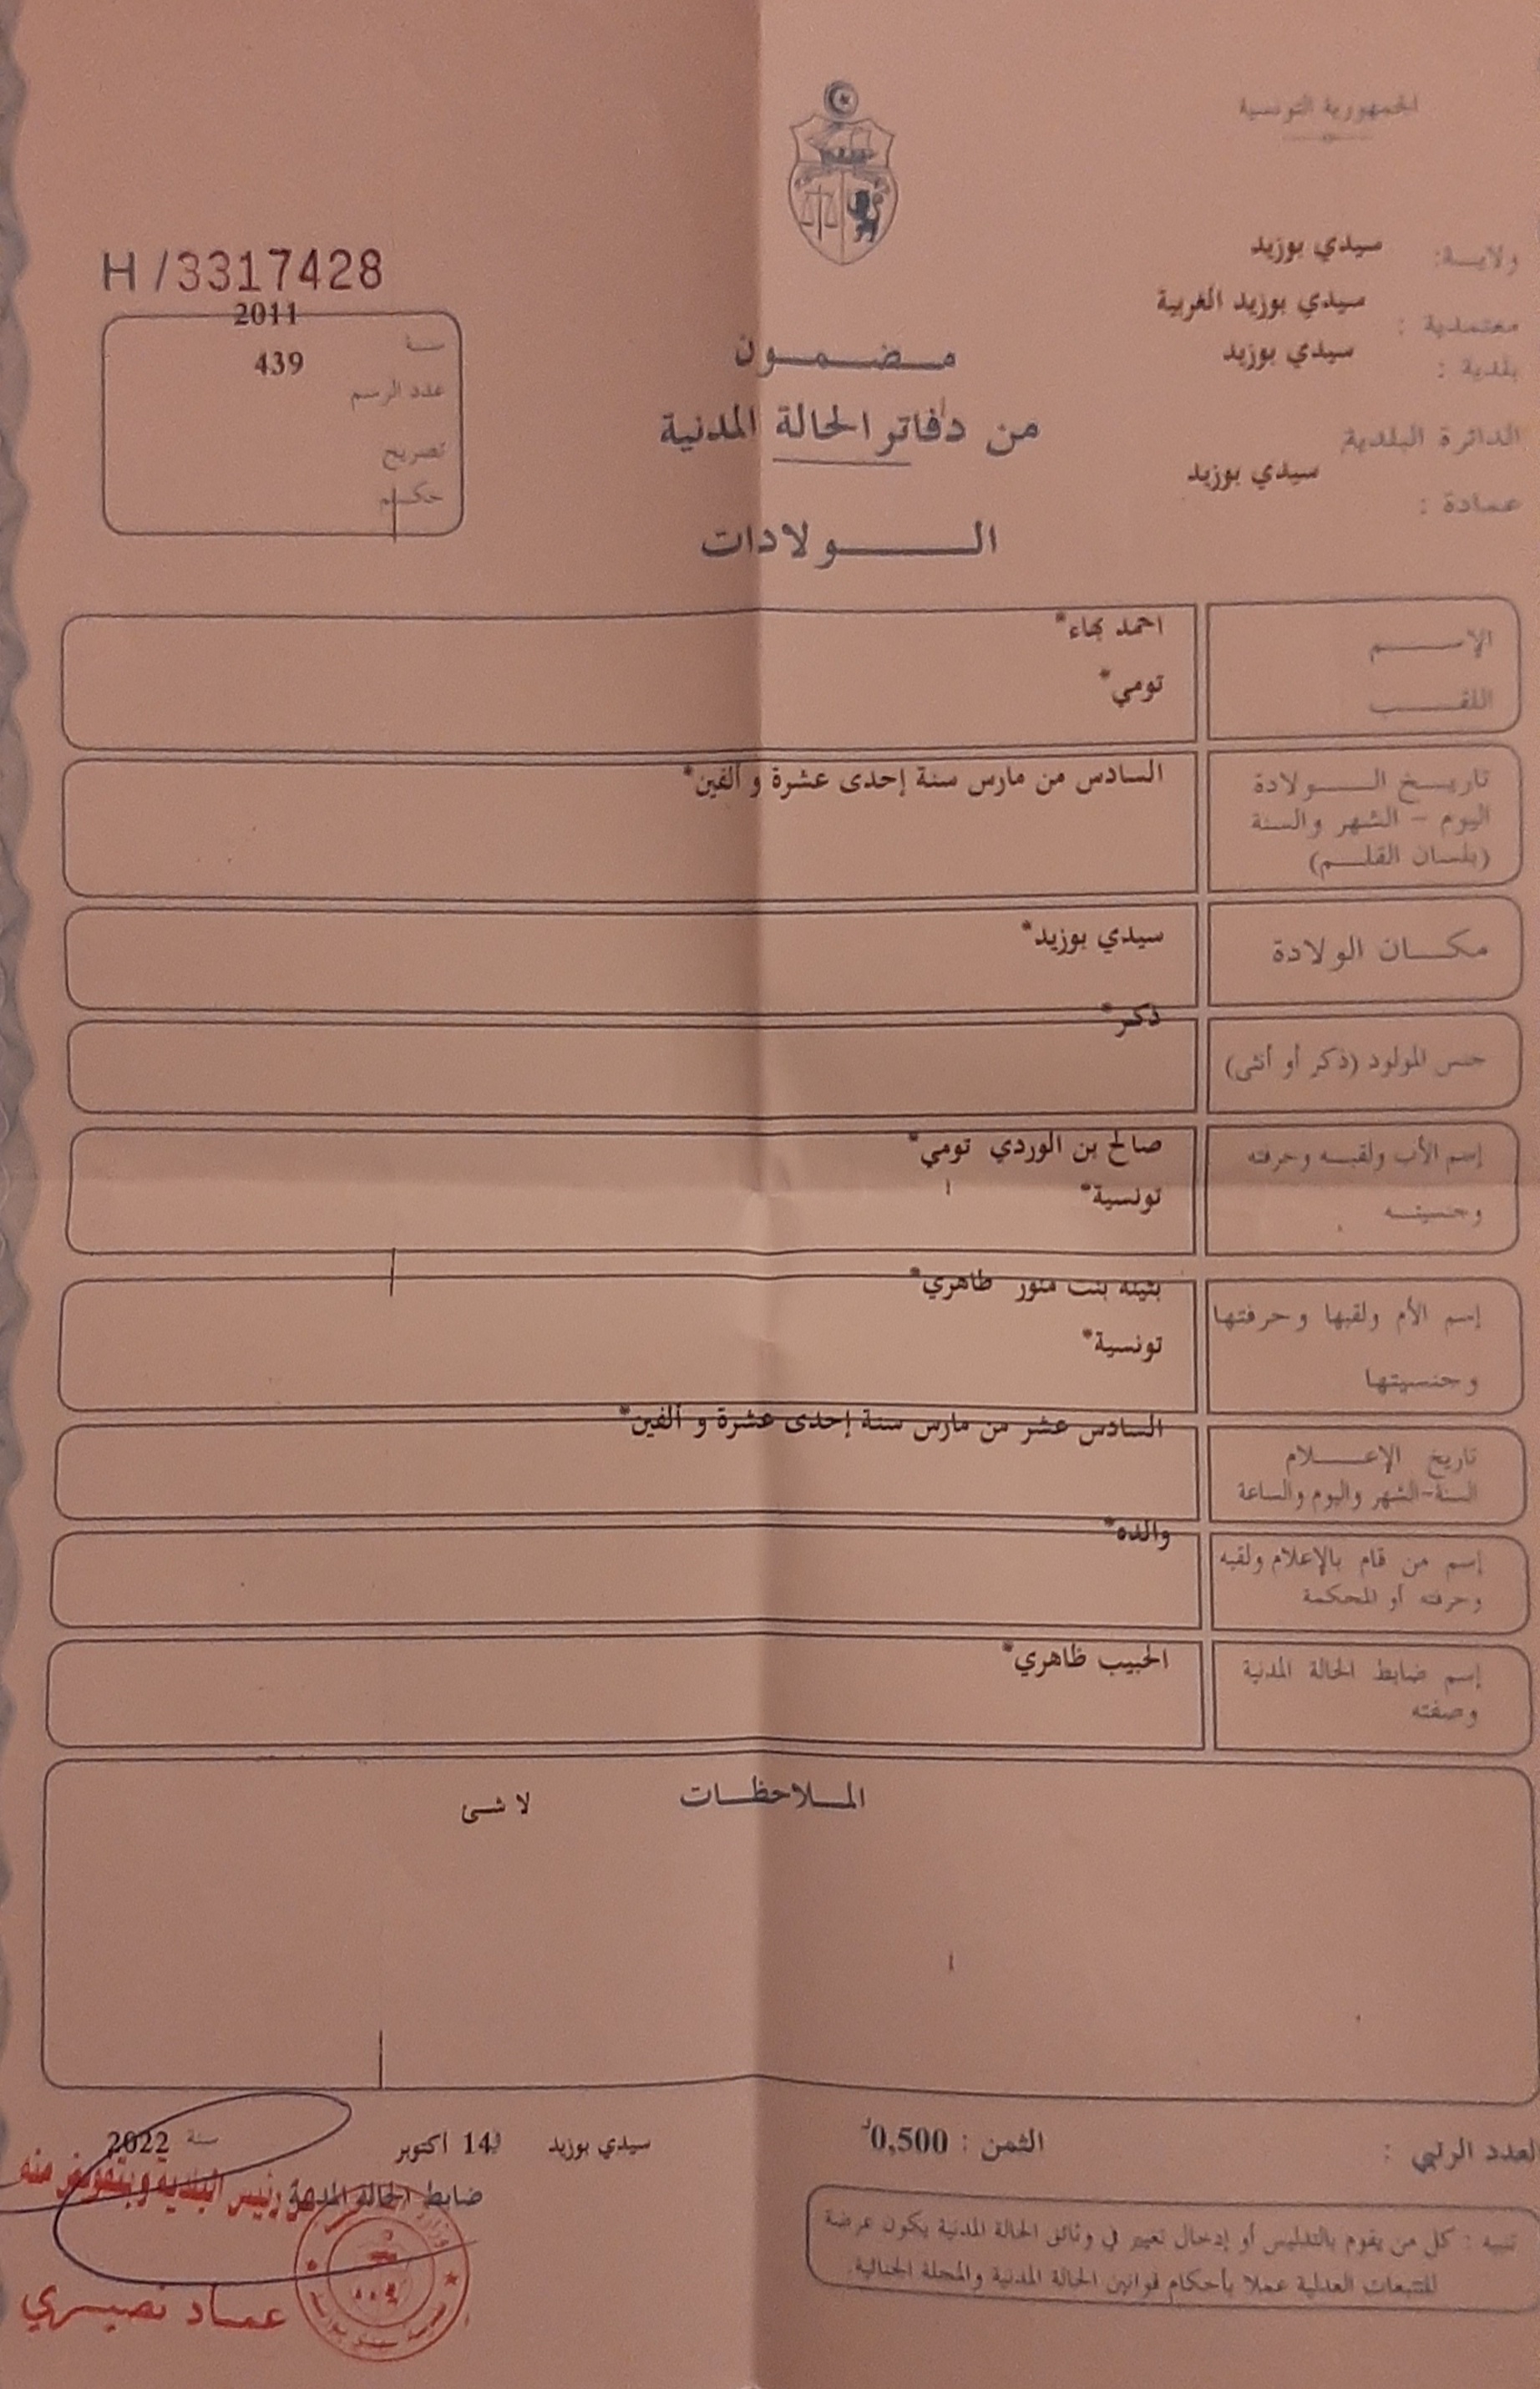 الجمهورية التونسية
ولاية: سيدي بوزيد
معتمدية : سيدي بوزيد الغربية
بلدية : سيدي بوزيد
الدائرة البلدية
سيدي بوزيد
عمادة :
H /3317428
سنة 2011
عدد الرسم 439
تصريح
حكم
مضمون
من دفاتر الحالة المدنية
الولادات
الإسم احمد بهاء*
اللقب تومي*
تاريخ الولادة السادس من مارس سنة إحدى عشرة و ألفين*
اليوم - الشهر والسنة
(بلسان القلم)
مكان الولادة سيدي بوزيد*
جنس المولود (ذكر أو أنثى) ذكر*
إسم الأب ولقبه وحرفته صالح بن الوردي تومي*
وجنسيته تونسية*
إسم الأم ولقبها وحرفتها بثينة بنت منور طاهري*
وجنسيتها تونسية*
تاريخ الإعلام السادس عشر من مارس سنة إحدى عشرة و ألفين*
السنة-الشهر واليوم والساعة
إسم من قام بالإعلام ولقبه والده*
وحرفته أو المحكمة
إسم ضابط الحالة المدنية الحبيب ظاهري*
وصفته
الملاحظات
لا شئ
العدد الرتبي :
الثمن : 0,500د
سيدي بوزيد 14 اكتوبر سنة 2022
ضابط الحالة المدنية
رئيس البلدية وبتفويض منه
عماد نصيري
تنبيه : كل من يقوم بالتدليس أو إدخال تغيير في وثائق الحالة المدنية يكون عرضة
للتتبعات العدلية عملا بأحكام قوانين الحالة المدنية والمجلة الجنائية.